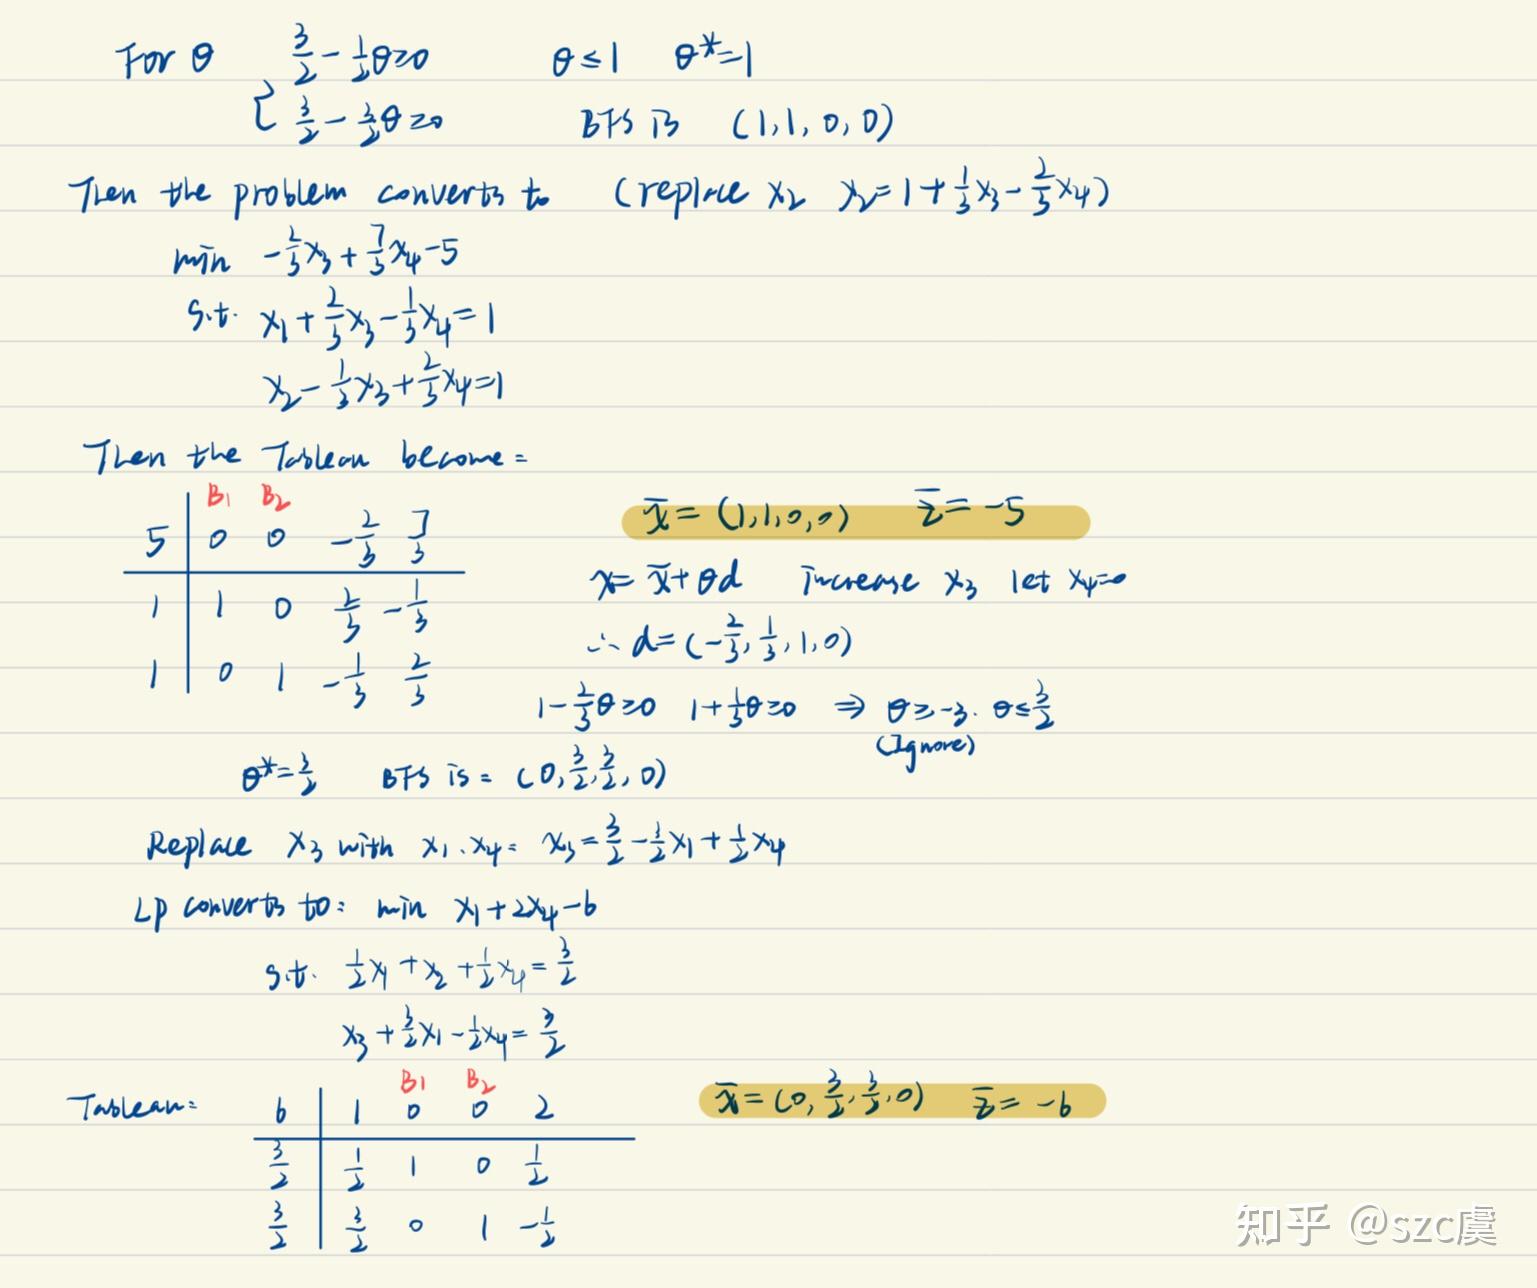 For θ 3/2 - 1/2θ≥0 θ≤1 θ*=1
{ 3/2 - 3/2θ≥0 BFS is (1,1,0,0)
Then the problem converts to (replace x2 x2=1+1/3x3-2/3x4)
min -2/3x3+7/3x4-5
s.t. x1+2/3x3-1/3x4=1
x2-1/3x3+2/3x4=1
Then the Tableau become:
B1 B2
5 | 0 0 -2/3 7/3
1 | 1 0 2/3 -1/3
1 | 0 1 -1/3 2/3
x̄=(1,1,0,0) z̄=-5
x=x̄+θd increase x3 let x4=0
∴ d=(-2/3,1/3,1,0)
1-2/3θ≥0 1+1/3θ≥0 ⇒ θ≥-3. θ≤3/2
(Ignore)
θ*=3/2 BFS is: (0,3/2,3/2,0)
Replace x3 with x1.x4: x3=3/2-3/2x1+1/2x4
LP converts to: min x1+2x4-6
s.t. 1/2x1+x2+1/2x4=3/2
x3+3/2x1-1/2x4=3/2
B1 B2
Tableau: 6 | 1 0 0 2
3/2 | 1/2 1 0 1/2
3/2 | 3/2 0 1 -1/2
x̄=(0,3/2,3/2,0) z̄=-6
知乎 @szc虞